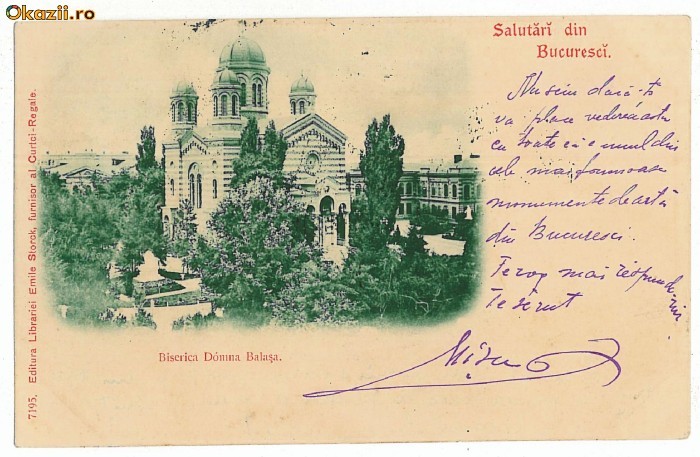 Okazii.ro
Salutări din
Bucurescĭ.
Nu sciu dacă-ți
va place vederea asta
cu toate că e unul din
cele mai frumoase
monumente de artă
din Bucuresci.
Te rog mai respunde-mi
Te sărut
Mișu
Biserica Dómna Balașa.
7195. Editura Librariei Emile Storck, furnisor al Curici-Regale.